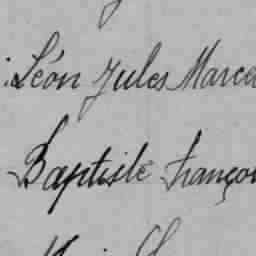 Léon Jules Marce
Baptiste françoi